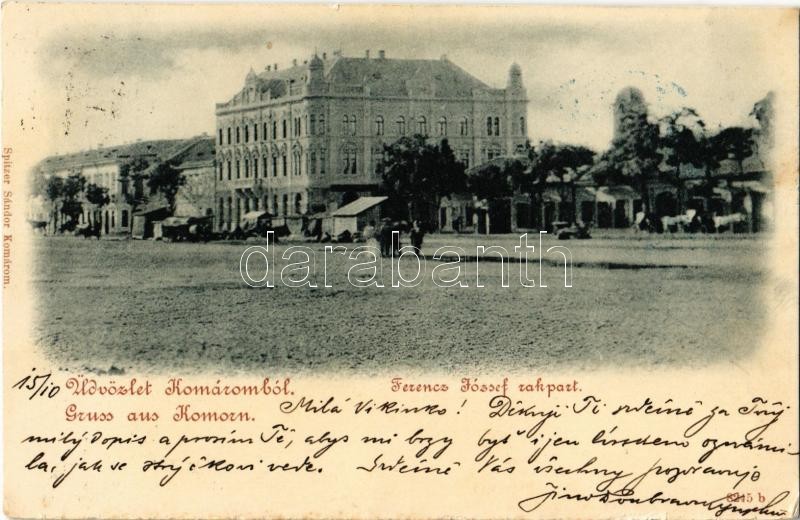 Spitzer Sándor Komárom.
darabanth
15/10 Üdvözlet Komáromból.
Ferencz József rakpart.
Gruss aus Komorn.
Milá Vikinko! Děkuji Ti srdečně za Tvůj
milý dopis a prosím Tě, abys mi brzy byť i jen úředeno oznámi-
la, jak se strýčkovi vede. Srdečně Vás všechny pozdravuje
8245 b